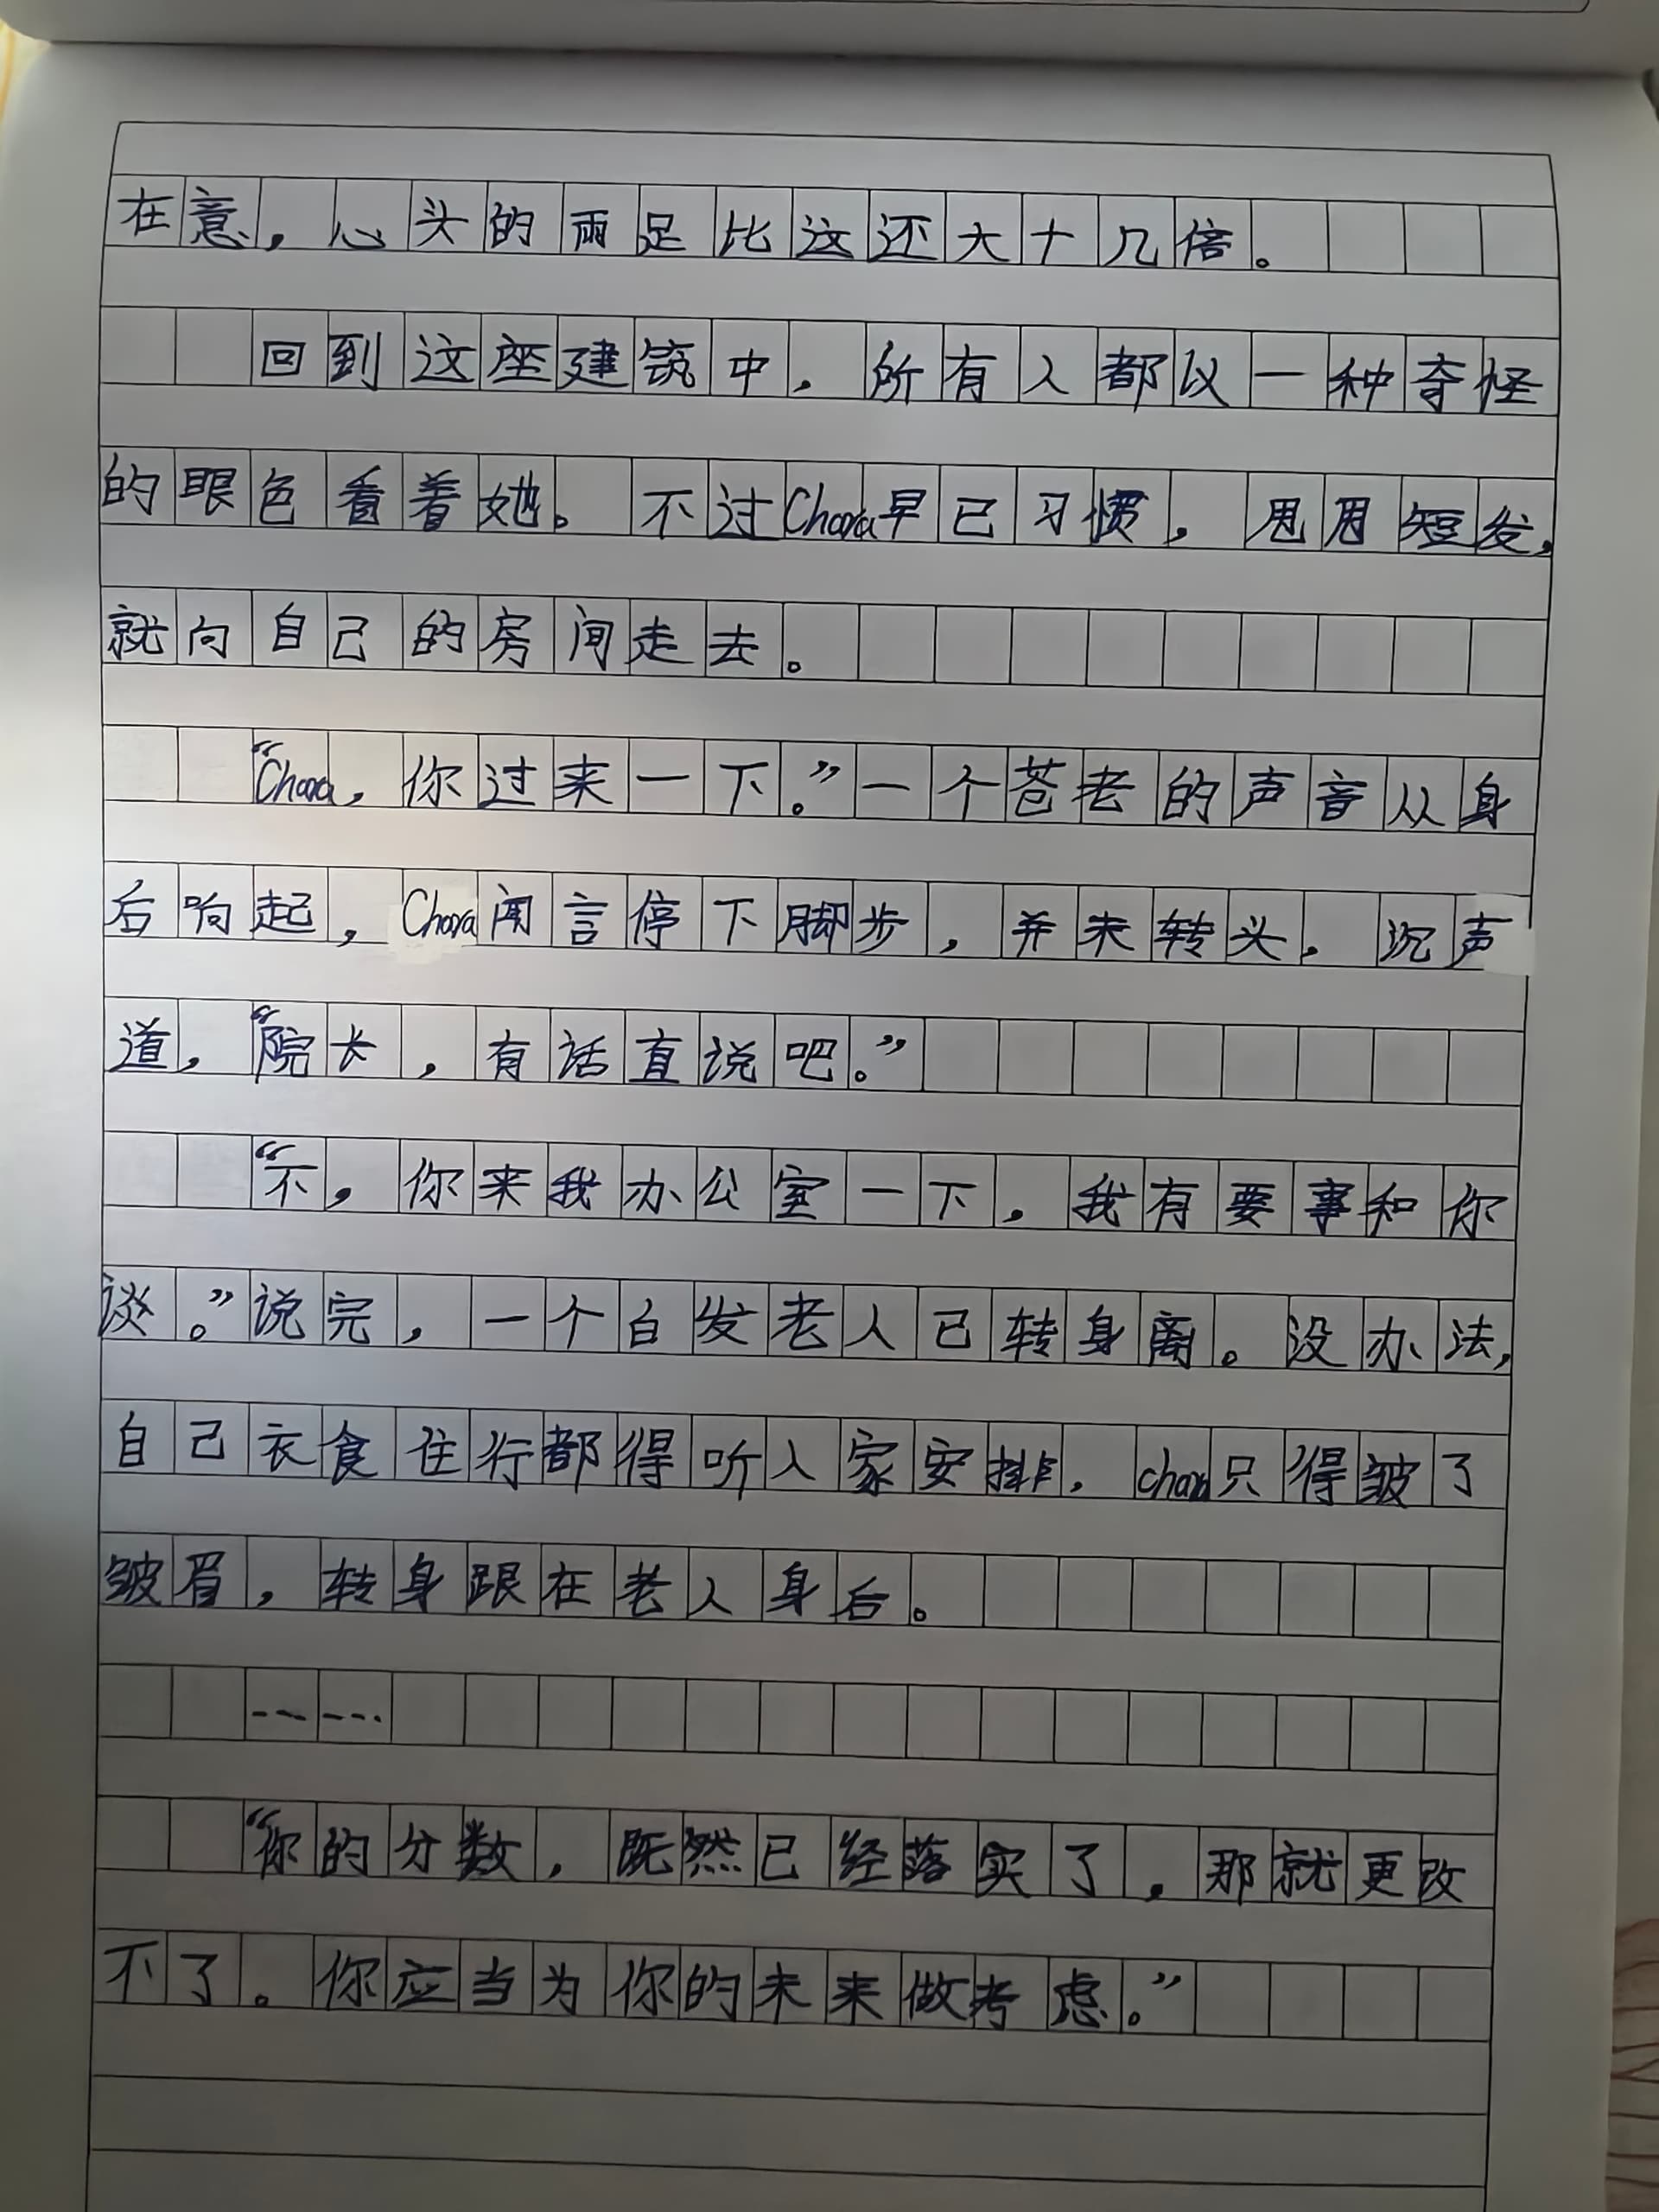 在意，心头的雨足比这还大十几倍。
回到这座建筑中，所有人都以一种奇怪
的眼色看着她。不过Chara早已习惯，甩甩短发，
就向自己的房间走去。
“Chara，你过来一下。”一个苍老的声音从身
后响起，Chara闻言停下脚步，并未转头，沉声
道，“院长，有话直说吧。”
“不，你来我办公室一下，我有要事和你
谈。”说完，一个白发老人已转身离。没办法，
自己衣食住行都得听人家安排，chara只得皱了
皱眉，转身跟在老人身后。
……
“你的分数，既然已经落实了，那就更改
不了。你应当为你的未来做考虑。”